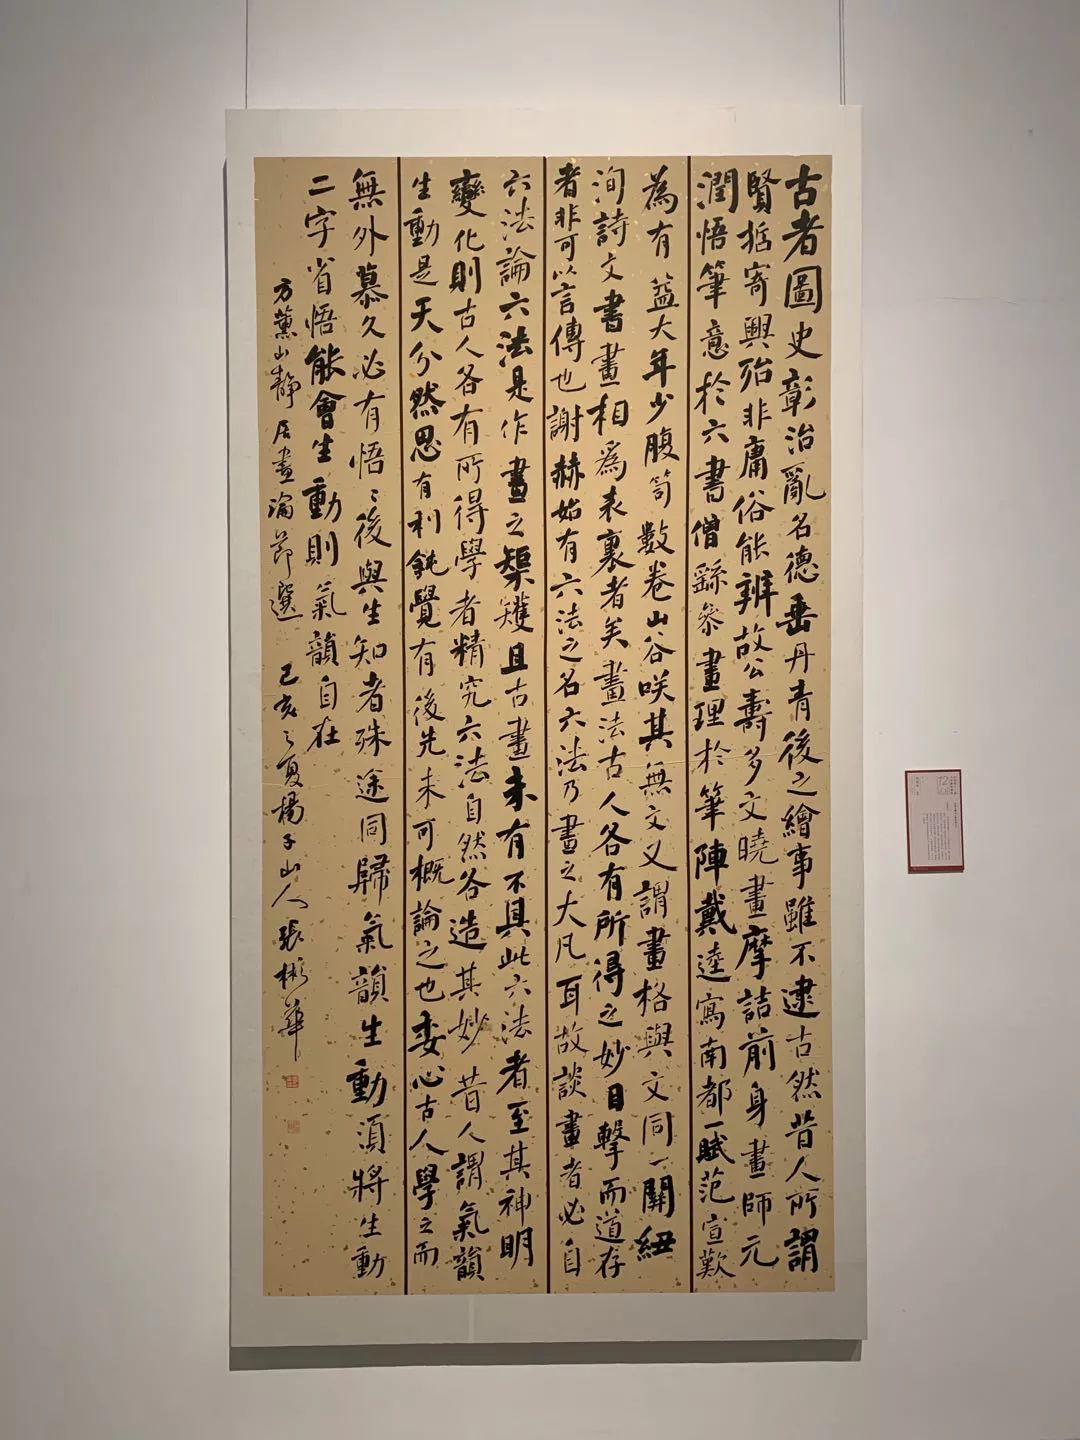 古者圖史彰治亂名德垂丹青後之繪事雖不逮古然昔人所謂
賢哲寄興殆非庸俗能辨故公壽多文曉畫摩詰前身畫師元
潤悟筆意於六書僧繇參畫理於筆陣戴逵寫南都一賦范宣歎
為有益大年少腹笥數卷山谷咲其無文又謂畫格與文同一關紐
洵詩文書畫相為表裏者矣畫法古人各有所得之妙目擊而道存
者非可以言傳也謝赫始有六法之名六法乃畫之大凡耳故談畫者必自
六法論六法是作畫之榘矱且古畫未有不具此六法者至其神明
變化則古人各有所得學者精究六法自然各造其妙昔人謂氣韻
生動是天分然思有利鈍覺有後先未可概論之也委心古人學之而
無外慕久必有悟〻後與生知者殊途同歸氣韻生動須將生動
二字省悟能會生動則氣韻自在
方薰山靜居畫論節選 己亥之夏楊子山人張彬華